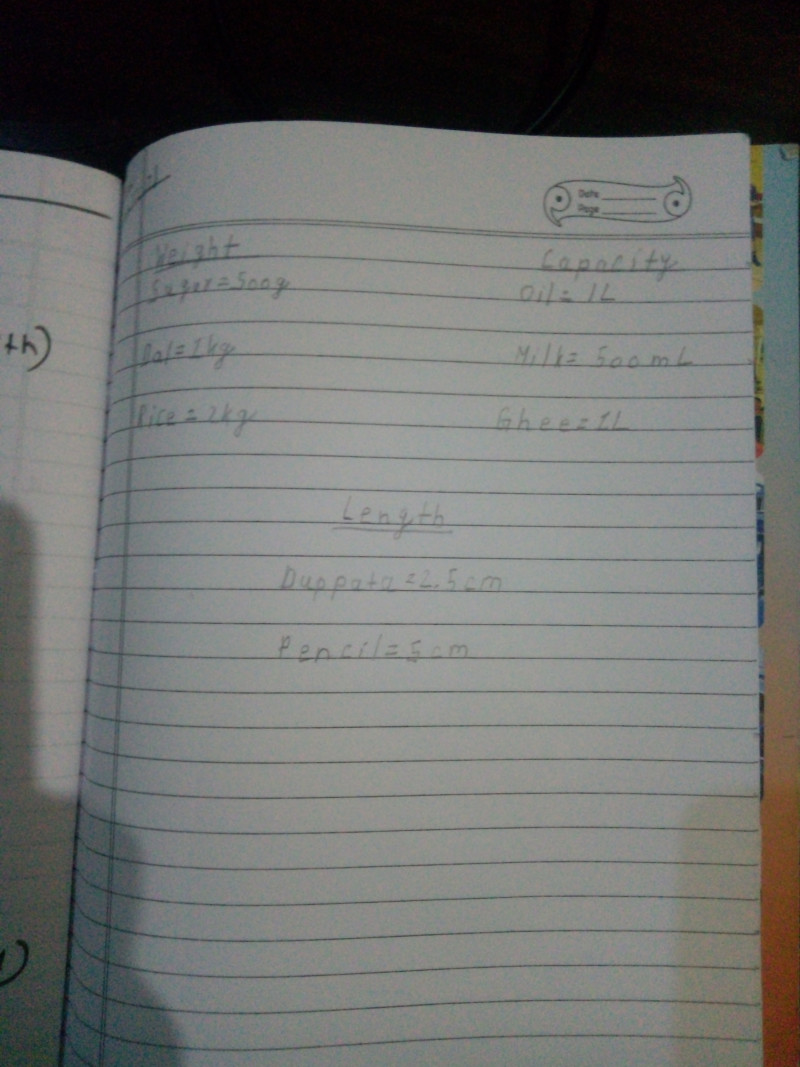 Date
Page
Weight
Capacity
Sugar=500g
Oil=1L
Dal=1kg
Milk=500mL
Rice=2kg
Ghee=1L
Length
Duppata=2.5cm
Pencil=5cm
th)